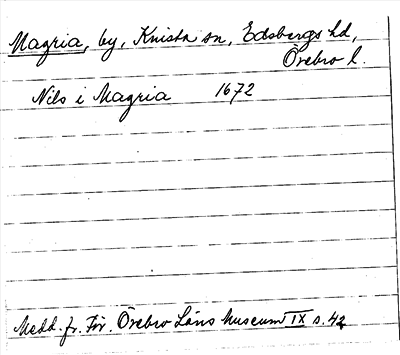 Magria, by, Knista sn, Edsbergs hd,
Örebro l.
Nils i Magria 1672
Medd. fr. För. Örebro Läns Museum IX s. 42